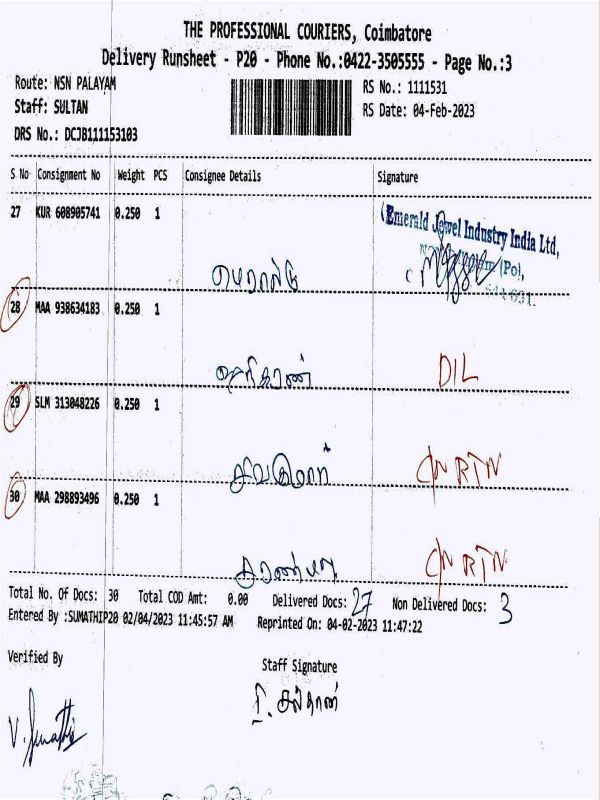 THE PROFESSIONAL COURIERS, Coimbatore
Delivery Runsheet - P20 - Phone No.:0422-3505555 - Page No.:3
Route: NSN PALAYAM
RS No.: 1111531
Staff: SULTAN
RS Date: 04-Feb-2023
DRS No.: DCJB111153103
S No Consignment No Weight PCS Consignee Details Signature
27 KUR 608905741 0.250 1
Emerald Jewel Industry India Ltd,
எமரால்டு
28 MAA 938634183 0.250 1
ஹரிகரண் DIL
29 SLM 313048226 0.250 1
சிவகுமார் CN RTN
30 MAA 298893496 0.250 1
சரண்யா CN RTN
Total No. Of Docs: 30 Total COD Amt: 0.00 Delivered Docs: 27 Non Delivered Docs: 3
Entered By :SUMATHIP20 02/04/2023 11:45:57 AM Reprinted On: 04-02-2023 11:47:22
Verified By
Staff Signature
V. Sumathi